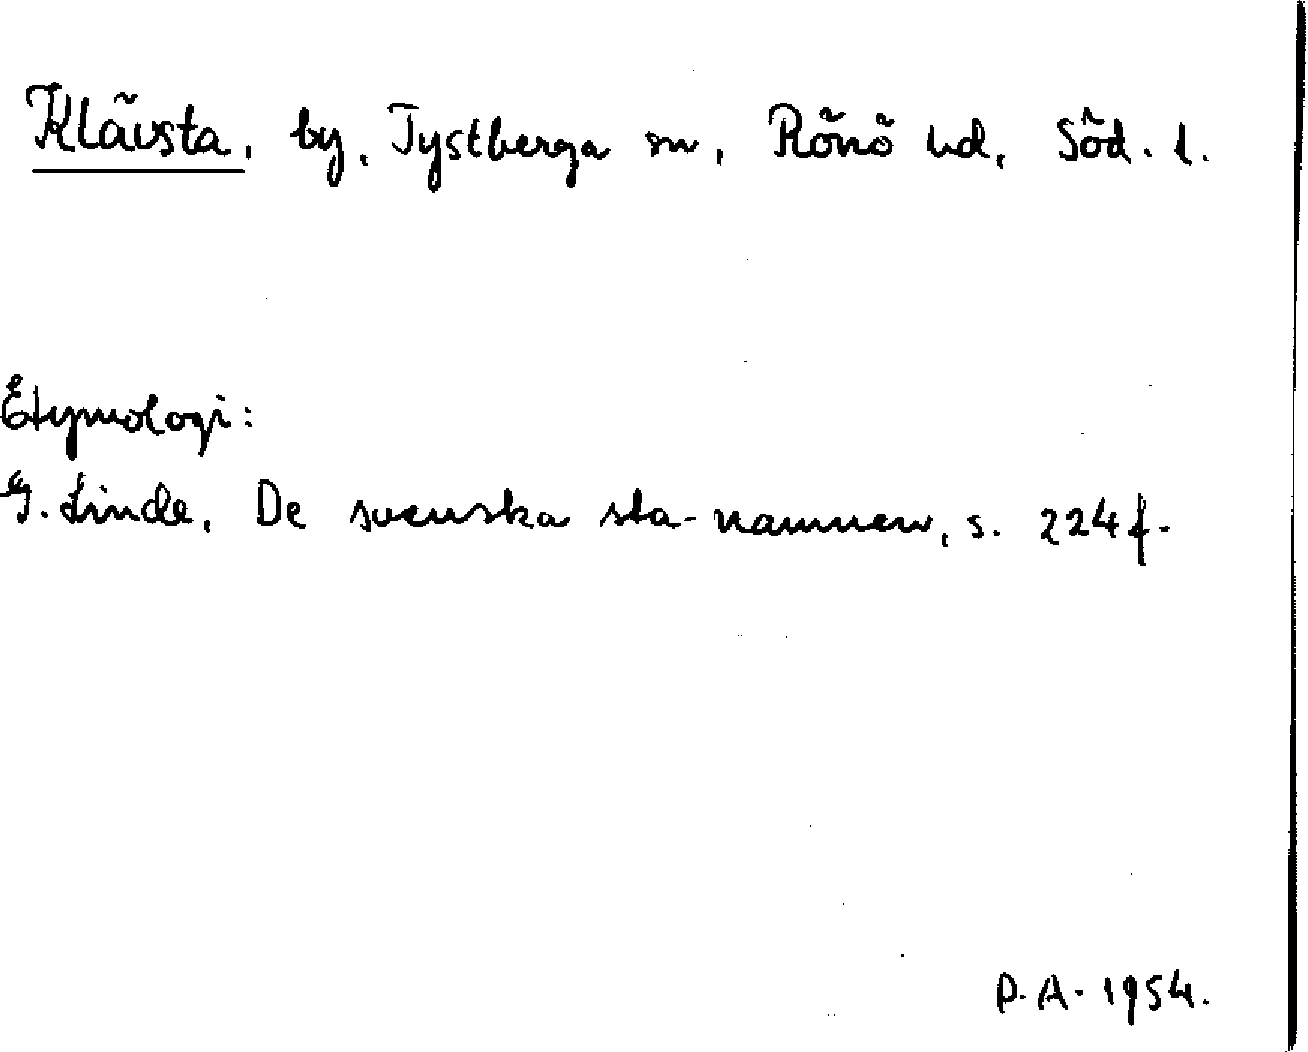 Klävsta, by, Tystberga sn, Rönö hd, Söd. l.
Etymologi:
G. Linde, De svenska sta-namnen, s. 224 f.
P. A. 1954.